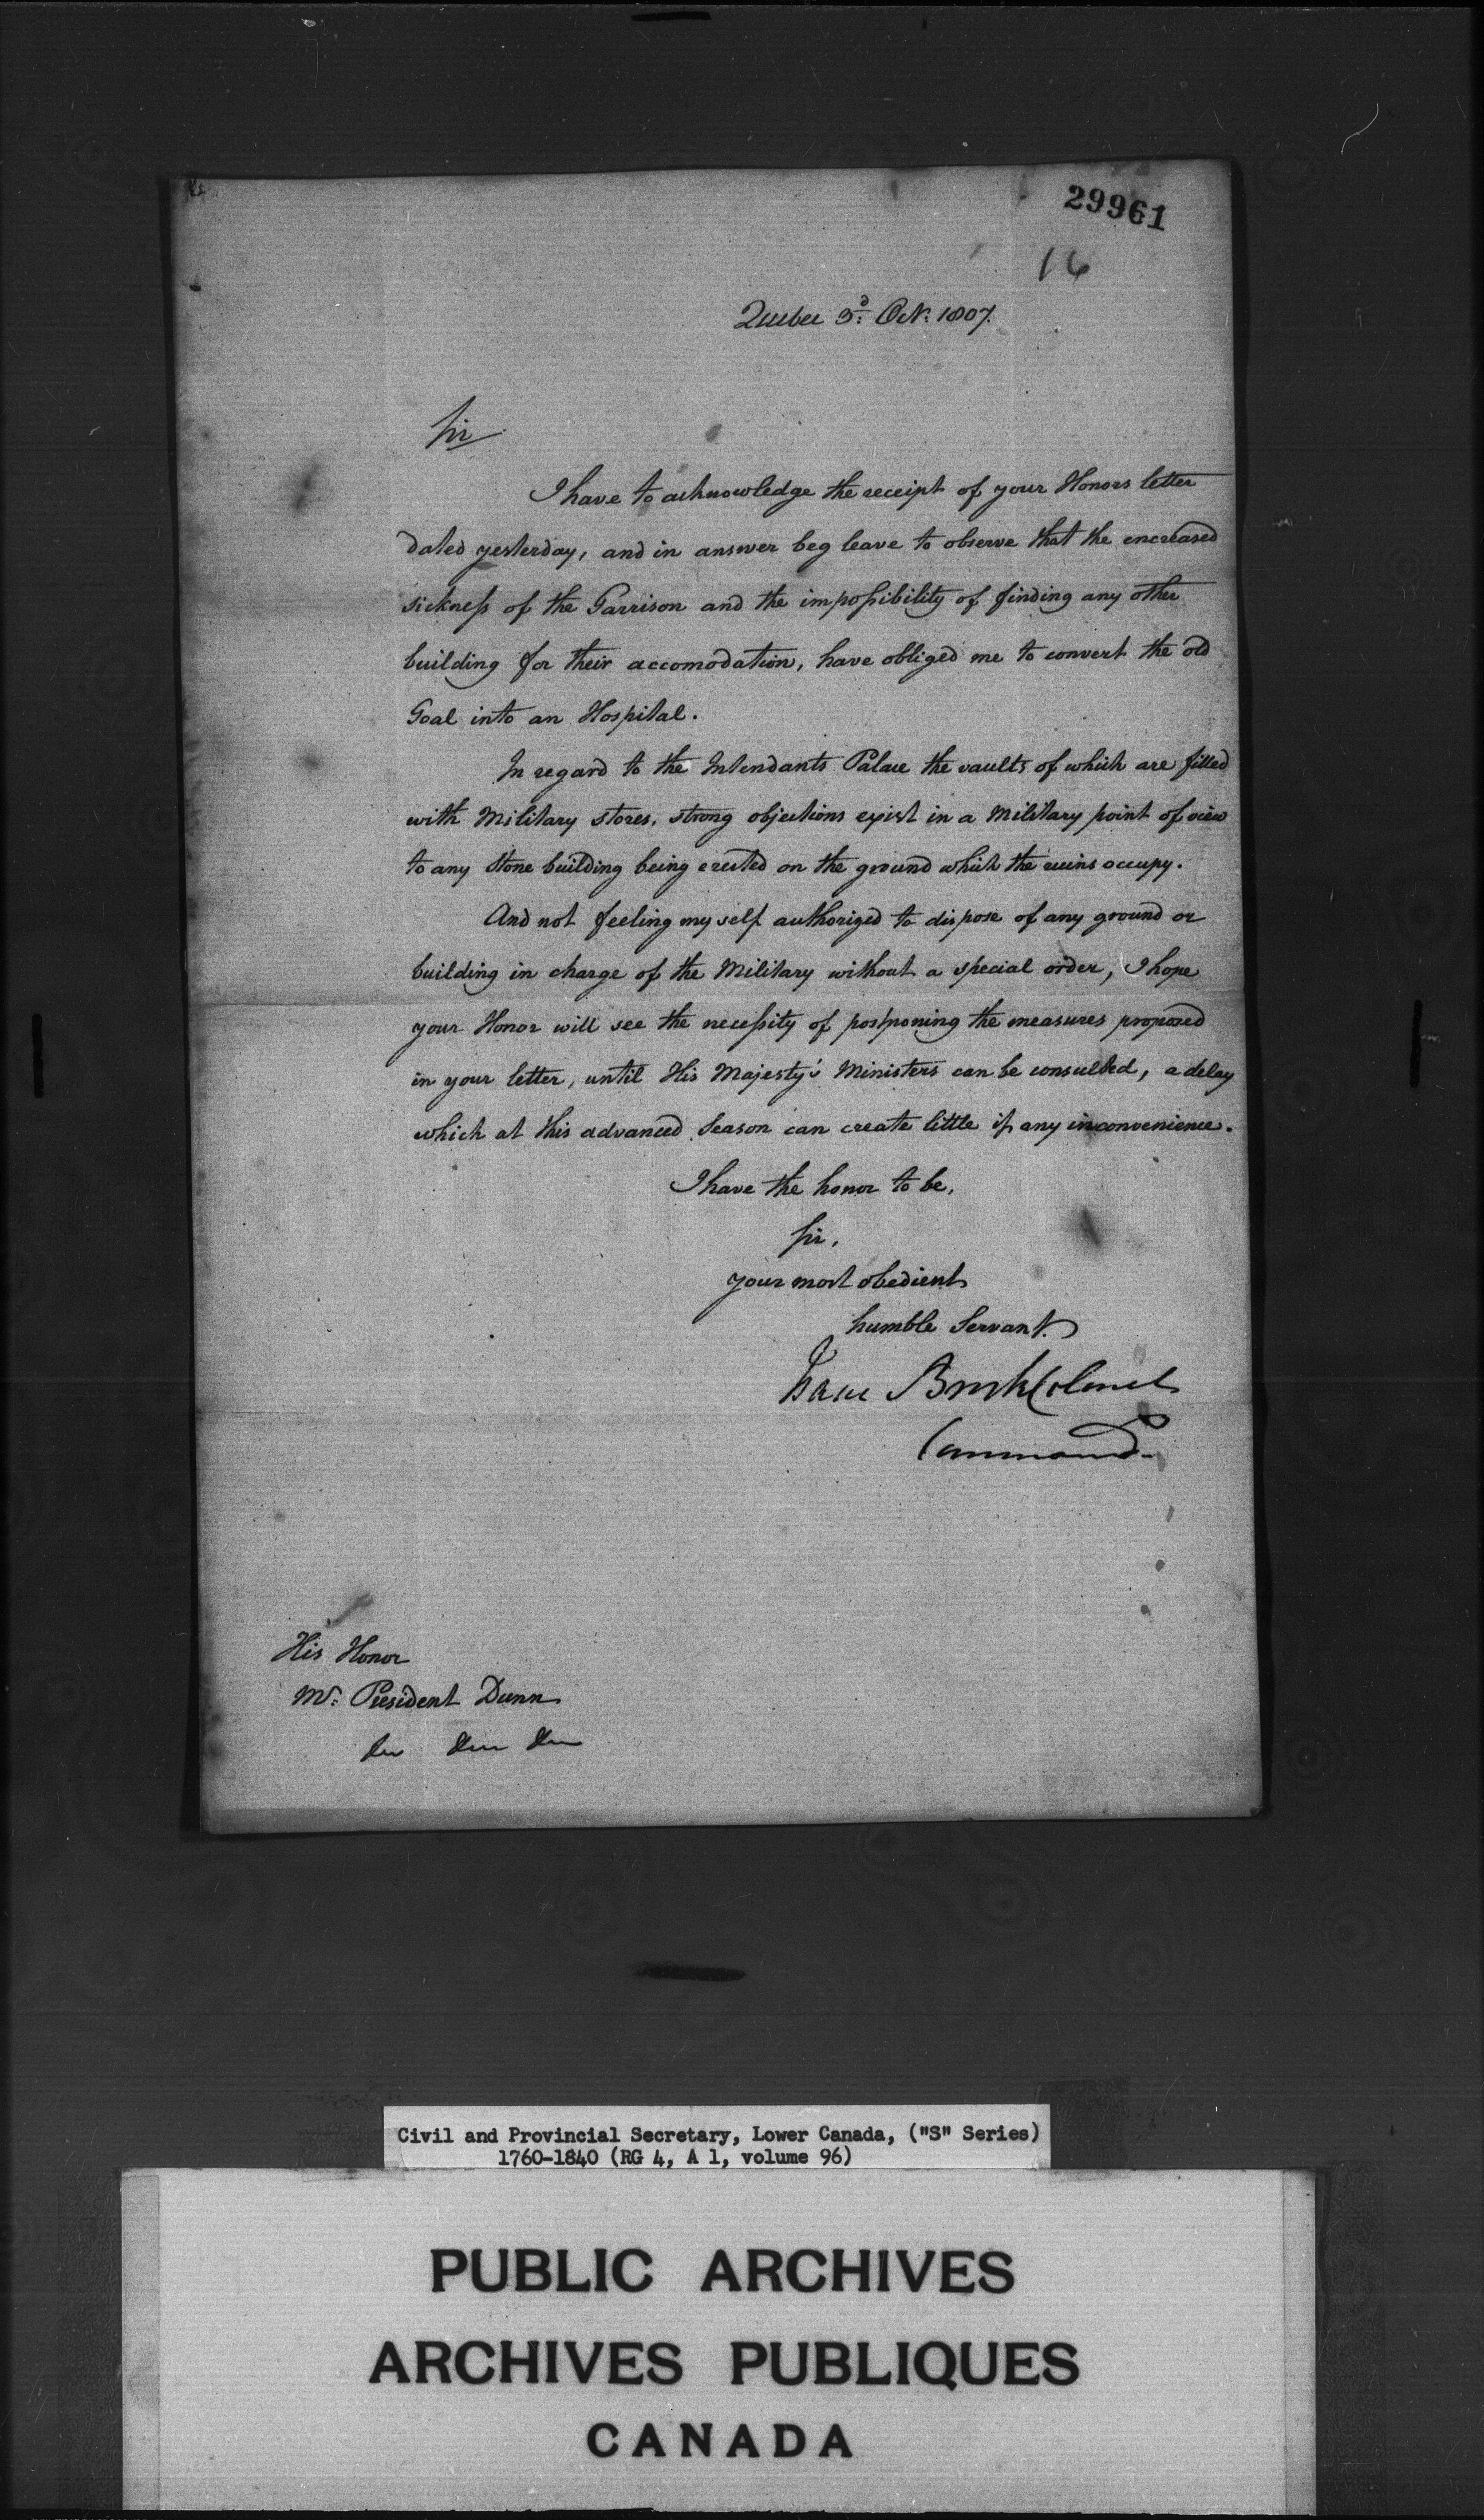 29961
16
Quebec 3d: Octr: 1807.
Sir
I have to acknowledge the receipt of your Honors letter
dated yesterday, and in answer beg leave to observe that the encreased
sickness of the Garrison and the impossibility of finding any other
building for their accomodation, have obliged me to convert the old
Goal into an Hospital.
In regard to the Intendants Palace the vaults of which are filled
with Military stores, strong objections exist in a Military point of view
to any Stone building being erected on the ground which the ruins occupy.
And not feeling my self authorized to dispose of any ground or
building in charge of the Military without a special order, I hope
your Honor will see the necessity of postponing the measures proposed
in your letter, until His Majesty's Ministers can be consulted, a delay
which at this advanced Season can create little if any inconvenience.
I have the honor to be,
Sir,
your most obedient
humble Servant.
Isaac Brock Colonel
Command.
His Honor
Mr: President Dunn
&c &c &c
Civil and Provincial Secretary, Lower Canada, ("S" Series)
1760-1840 (RG 4, A 1, volume 96)
PUBLIC ARCHIVES
ARCHIVES PUBLIQUES
CANADA